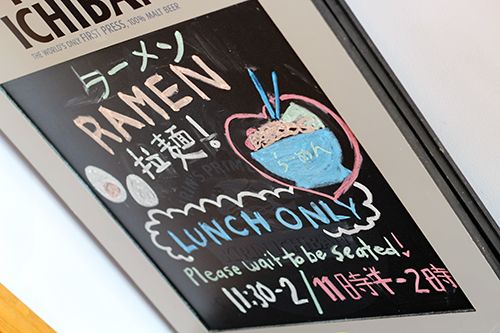 ICHIBAN
THE WORLD'S ONLY FIRST PRESS, 100% MALT BEER
ラーメン
RAMEN
拉麺!
らーめん
LUNCH ONLY
Please wait to be seated!
11:30-2/11時半-2時